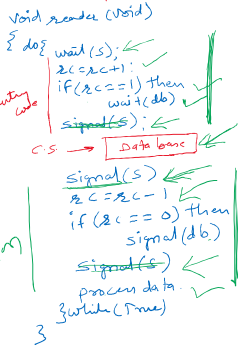 void reader (void)
{ do{ wait(S);
rc=rc+1;
if(rc==1) then
wait(db)
entry code
signal(S);
C.S. → Database
signal(S)
rc = rc - 1
if (rc == 0) then
signal(db)
signal(S)
process data.
}while(True)
}